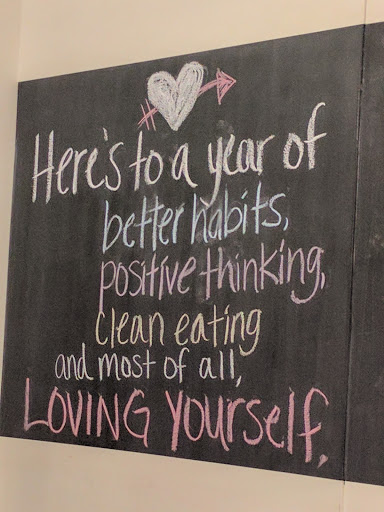 Here's to a year of
better habits,
positive thinking,
clean eating
and most of all,
LOVING Yourself.